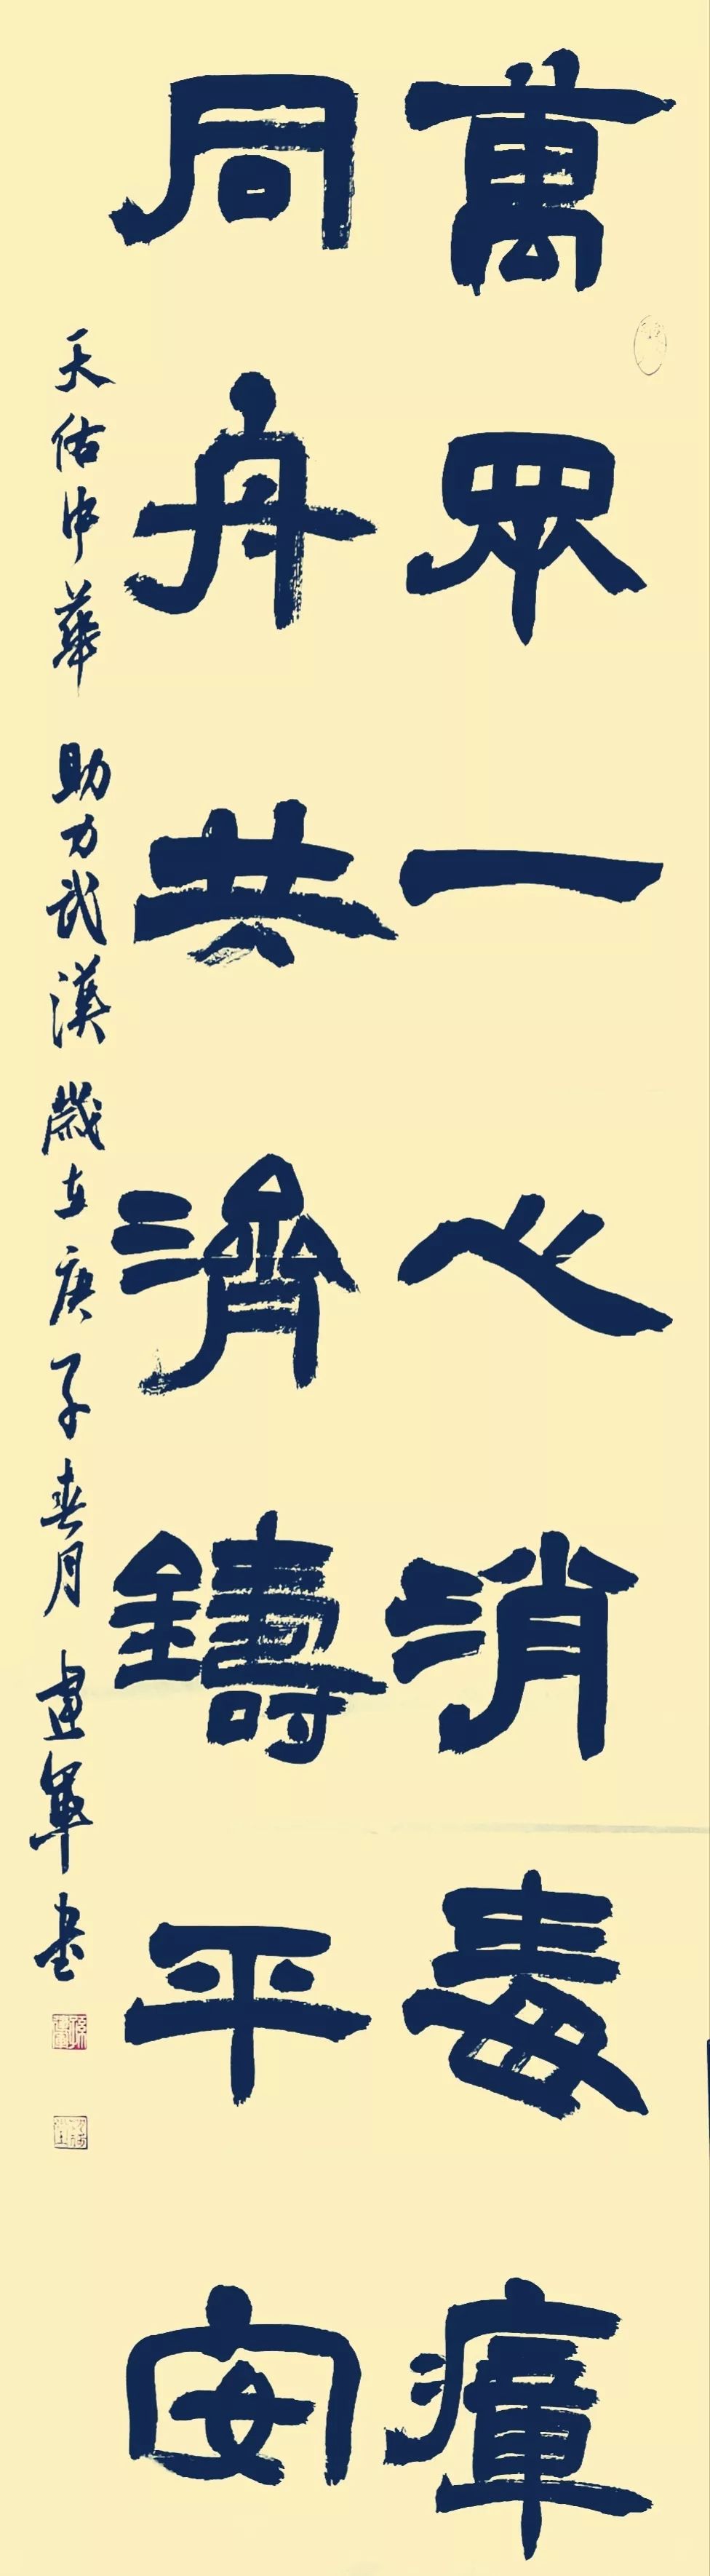 萬眾一心消毒瘴
同舟共濟鑄平安
天佑中華 助力武漢 歲在庚子春月 建軍書